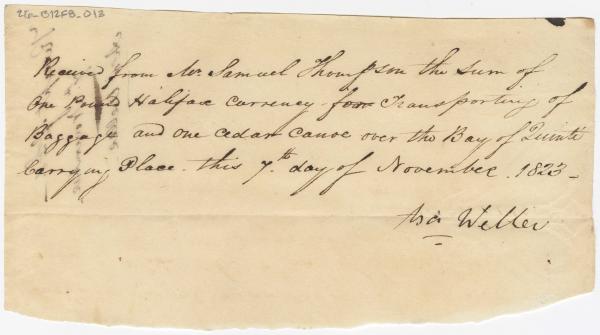 26-B12FB_013
Received from Mr. Samuel Thompson the Sum of
One Pound Halifax Currency for Transporting of
Baggage and one cedar canoe over the Bay of Quinti
Carrying Place. this 7th day of November. 1823 -
Asa Weller